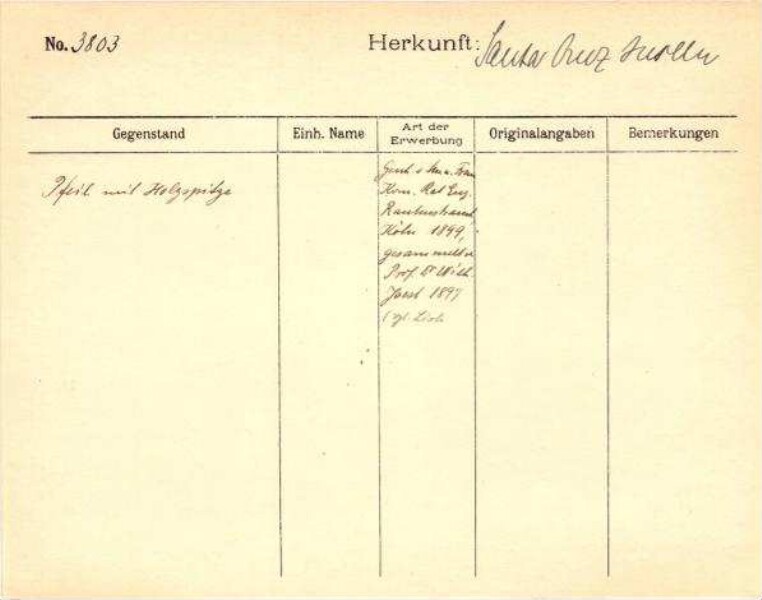 No. 3803
Herkunft: Santa Cruz Inseln
Gegenstand
Einh. Name
Art der
Erwerbung
Originalangaben
Bemerkungen
Pfeil mit Holzspitze
Gesch. v. u. Frau
Kom. Rat Eug.
Rautenstrauch
Köln 1899,
gesammelt v.
Prof. Dr Wilh.
Joest 1897